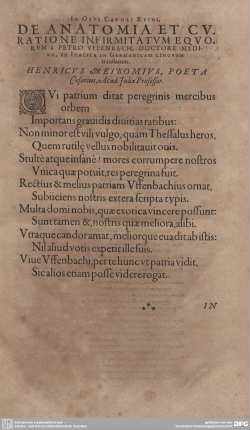 IN OPVS CAROLI RVINI,
DE ANATOMIA ET CV-
RATIONE INFIRMITATVM EQVO-
RVM A PETRO VFFENBACH, DOCTORE MEDI-
CO, EX ITALICA IN GERMANICAM LINGVAM
translatum.
HENRICVS MEIBOMIVS, POETA
Cæsareus, & Acad. Juliæ Professor.
QVi patrium ditat peregrinis mercibus
orbem
Importans grauidis diuitias ratibus:
Non minor est vili vulgo, quam Thessalus heros,
Quem rutilę vellus nobilitauit ouis.
Stultè atque insanè! mores corrumpere nostros
Vnica qua potuit, res peregrina fuit.
Rectius & melius patriam Vffenbachius ornat,
Subijciens nostris extera scripta typis.
Multa domi nobis, quæ exotica vincere possunt:
Sunt tamen &, nostris quæ meliora, alibi.
Vtraque candor amat, meliorque euadit ab istis:
Nil aliud votis expetit ille suis.
Viue Vffenbachi, per te hunc vt patria vidit,
Sic alios etiam posse videre rogat.
IN